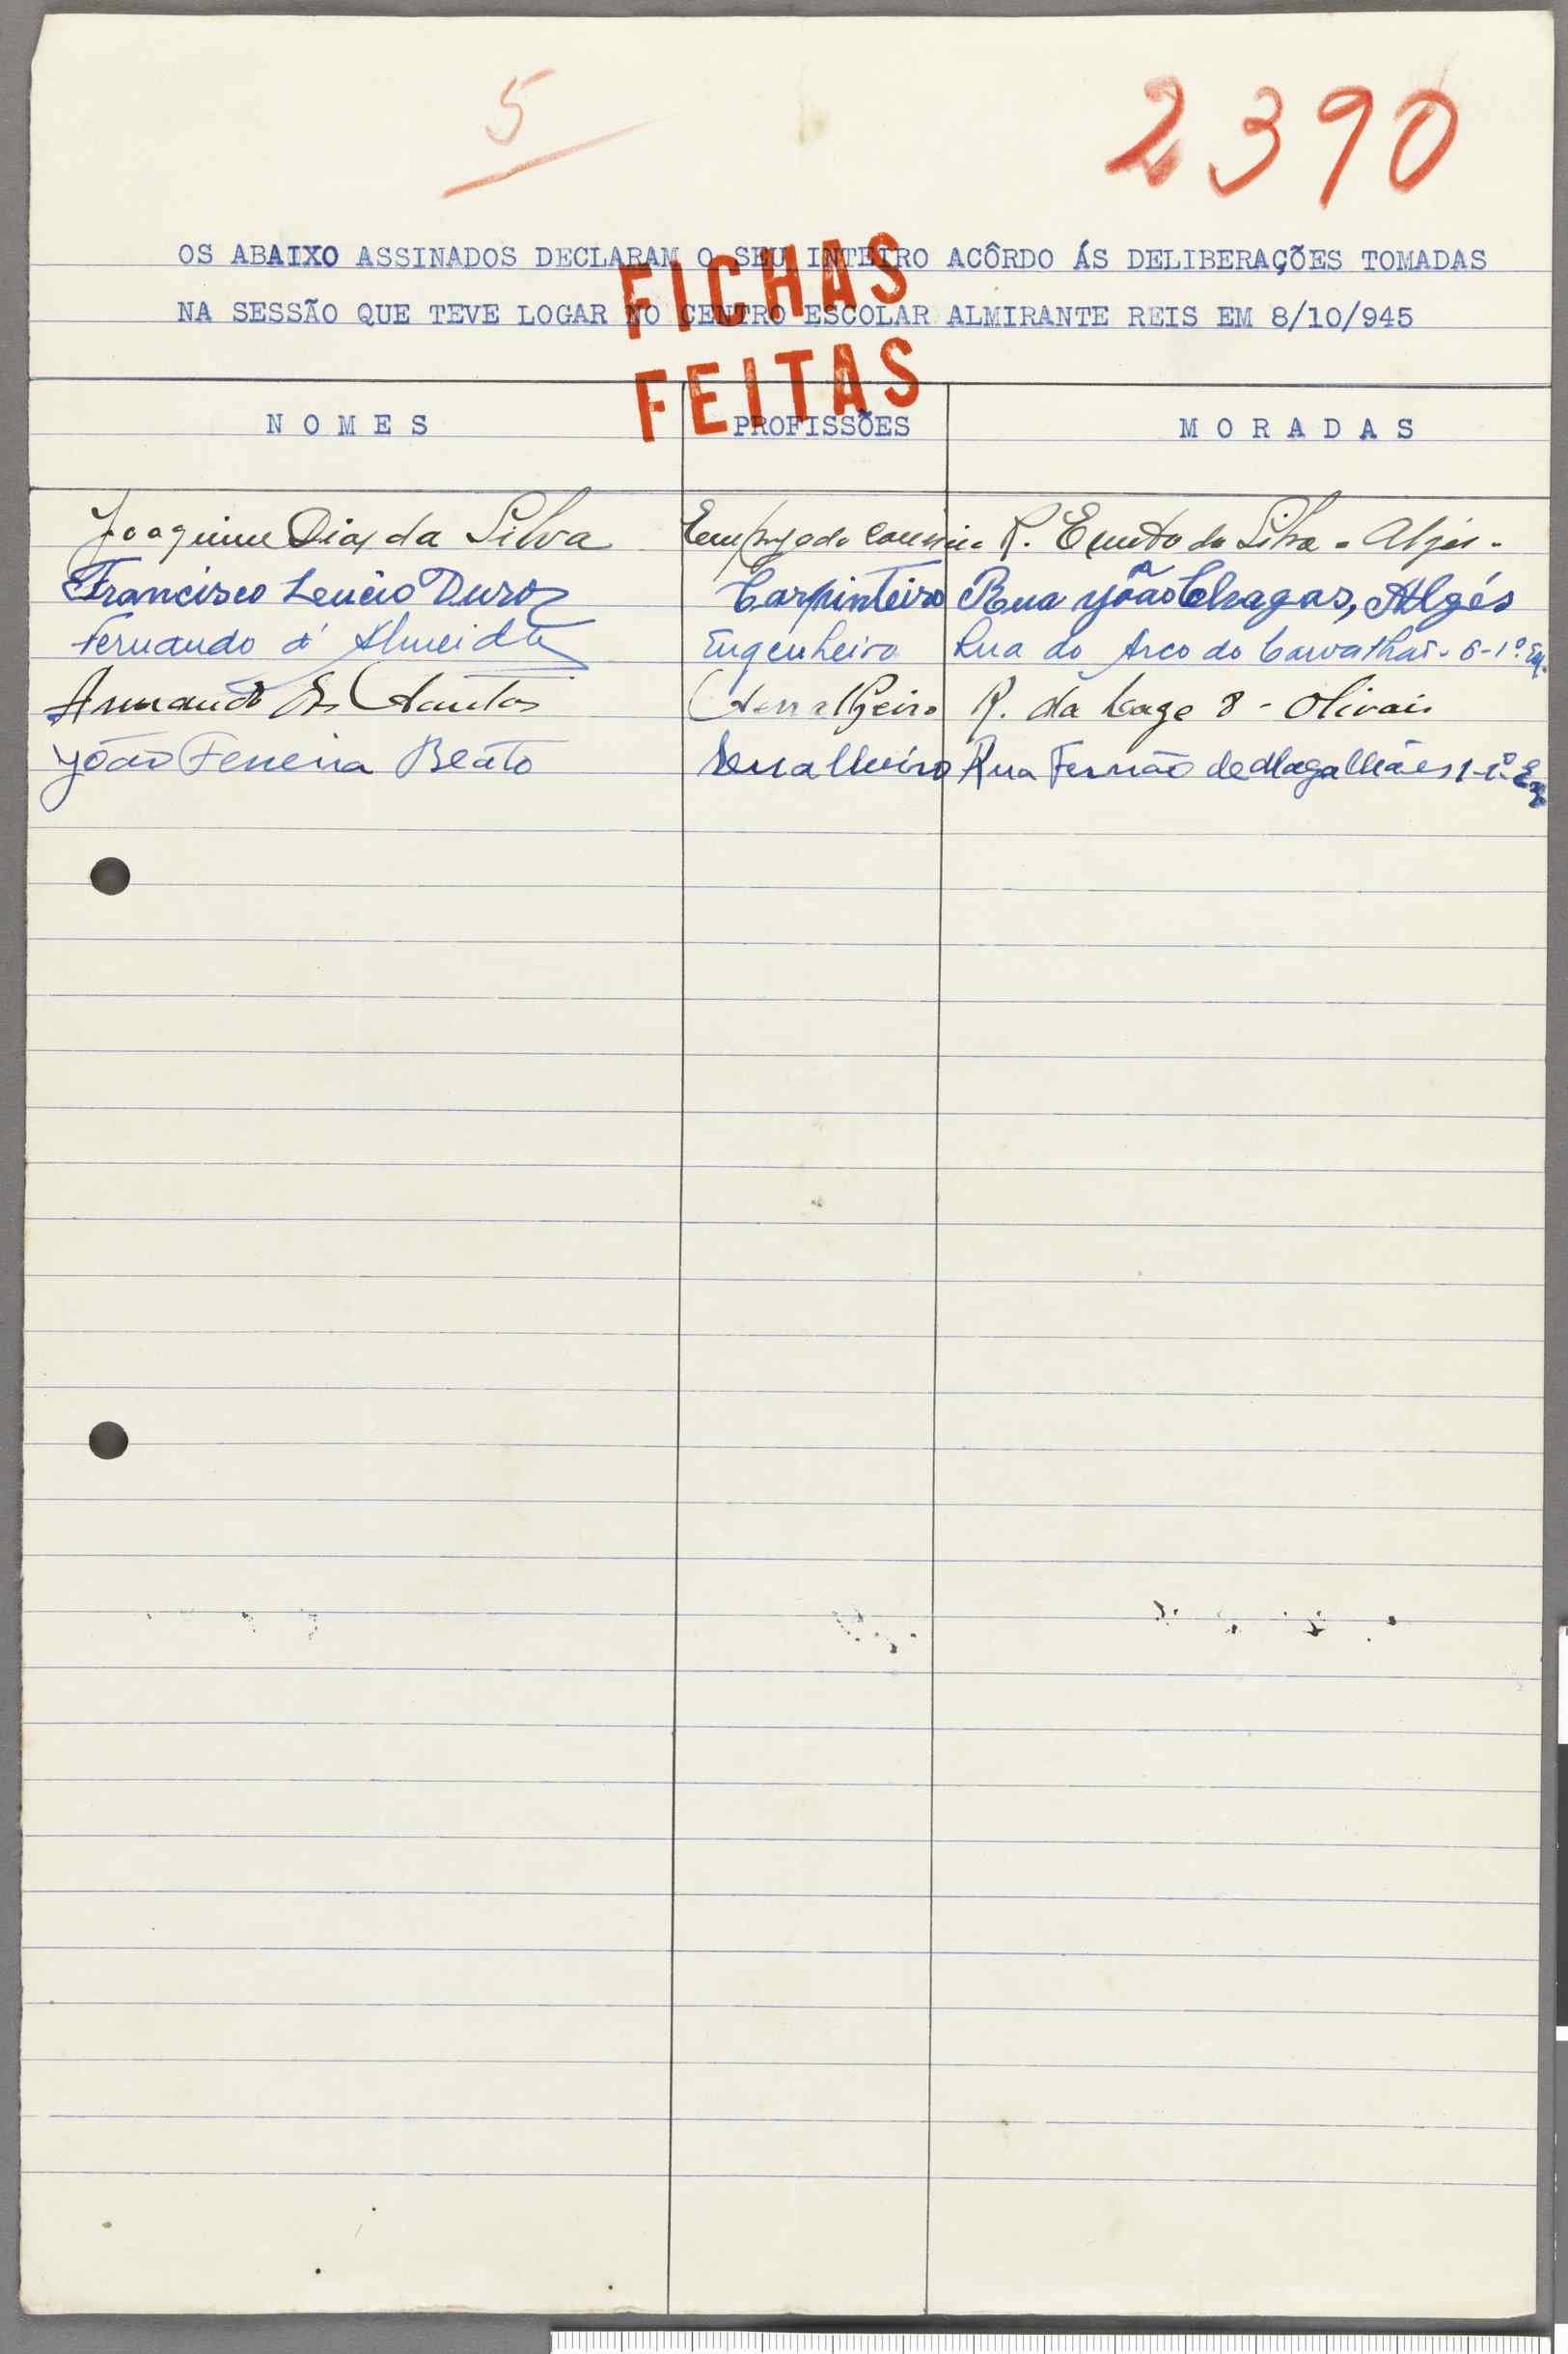 5
2390
OS ABAIXO ASSINADOS DECLARAM O SEU INTEIRO ACÔRDO ÁS DELIBERAÇÕES TOMADAS
NA SESSÃO QUE TEVE LOGAR NO CENTRO ESCOLAR ALMIRANTE REIS EM 8/10/945
FICHAS
FEITAS
NOMES PROFISSÕES MORADAS
Joaquim Dias da Silva R. da Silva - Algés -
Francisco Lencio Duro Carpinteiro Rua João Chagas, Algés
Fernando d'Almeida Engenheiro Rua do Arco do Carvalhão - 6 - 1º Esq.
Armando dos Santos Serralheiro R. da Lage 8 - Olivais
João Ferreira Beato Serralheiro Rua Fernão de Magalhães 1-1º Esq